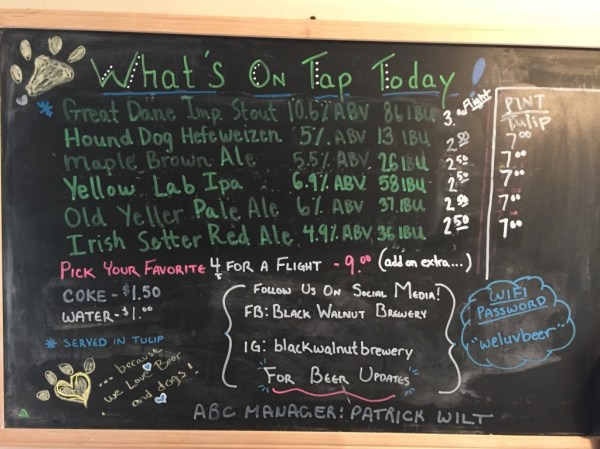 What's On Tap Today!
Flight
PINT
Tulip
* Great Dane Imp. Stout 10.6% ABV 86 IBU 3.00
Hound Dog Hefeweizen 5% ABV 13 IBU 2.50 7.00
Maple Brown Ale 5.5% ABV 26 IBU 2.50 7.00
Yellow Lab Ipa 6.9% ABV 58 IBU 2.50 7.00
Old Yeller Pale Ale 6% ABV 37 IBU 2.50 7.00
Irish Setter Red Ale 4.9% ABV 36 IBU 2.50 7.00
PICK YOUR FAVORITE 4 FOR A FLIGHT - 9.00 (add on extra...)
COKE - $1.50
WATER - $1.00
* SERVED IN TULIP
... because
we Love Beer
and dogs!
FOLLOW US ON SOCIAL MEDIA!
FB: BLACK WALNUT BREWERY
IG: blackwalnutbrewery
FOR BEER UPDATES
WIFI
PASSWORD
"weluvbeer"
ABC MANAGER: PATRICK WILT